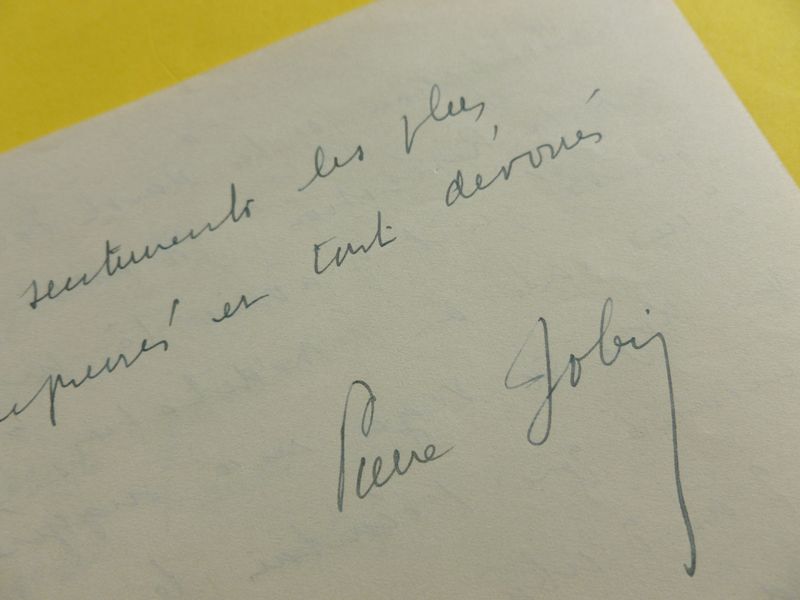 sentiments les plus
et tout dévoués
Pierre Jobin